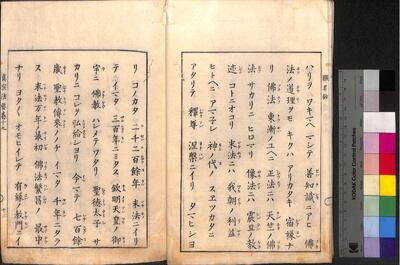 ハリヲワキマヘマシテ善知識ニアヒ佛
法ノ道理ヲモキクハアリカタキ宿縁ナ
リ佛法東漸ノユヘニ正法ニハ天竺ノ佛
法サカリニヒロマリ像法ニハ震旦ノ教
迹コトニオコリ末法ニハ我朝ノ利益
ヒトヘニアマネシ神ノ代ノスヱツカタニ
アタリテ釋尊涅槃ニイリタマヒシヨ
リコノカタ二千二百餘年末法ニイリ
テイマタ二百年ニミタス欽明天皇ノ御
宇ニ佛教ハシメテワタリ聖德太子サ
カリニコレヲ弘給シヨリ今マテ七百餘
歳聖教傳來ノノチイマタ千年ニタラ
ス末法万年ノ最初佛法繁昌ノ最中
ナリヨクヨクオモヒイレテ有縁ノ教門ニイ
眞宗法要卷十九
KODAK Color Control Patches